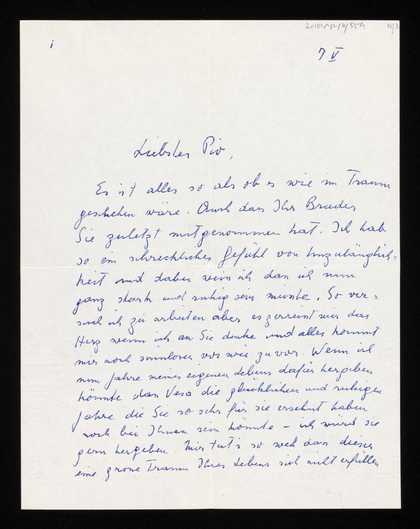 7 V
Liebster Pio,
Es ist alles so als ob es wie im Traum
geschehen wäre. Auch dass Ihr Bruder
Sie zuletzt mitgenommen hat. Ich hab
so ein schreckliches Gefühl von Unzulänglich-
keit und dabei weiss ich dass ich nun
ganz stark und ruhig sein müsste. So ver-
such ich zu arbeiten aber es zerreisst mir das
Herz wenn ich an Sie denke und alles kommt
mir noch sinnloser vor wie zuvor. Wenn ich
nun Jahre meines eigenen Lebens dafür hergeben
könnte dass Vera die glücklichen und ruhigen
Jahre die Sie so sehr für sie ersehnt haben
noch bei Ihnen sein könnte – ich würd sie
gern hergeben. Mir tut's so weh dass dieser
eine grosse Traum Ihres Lebens sich nicht erfüllen